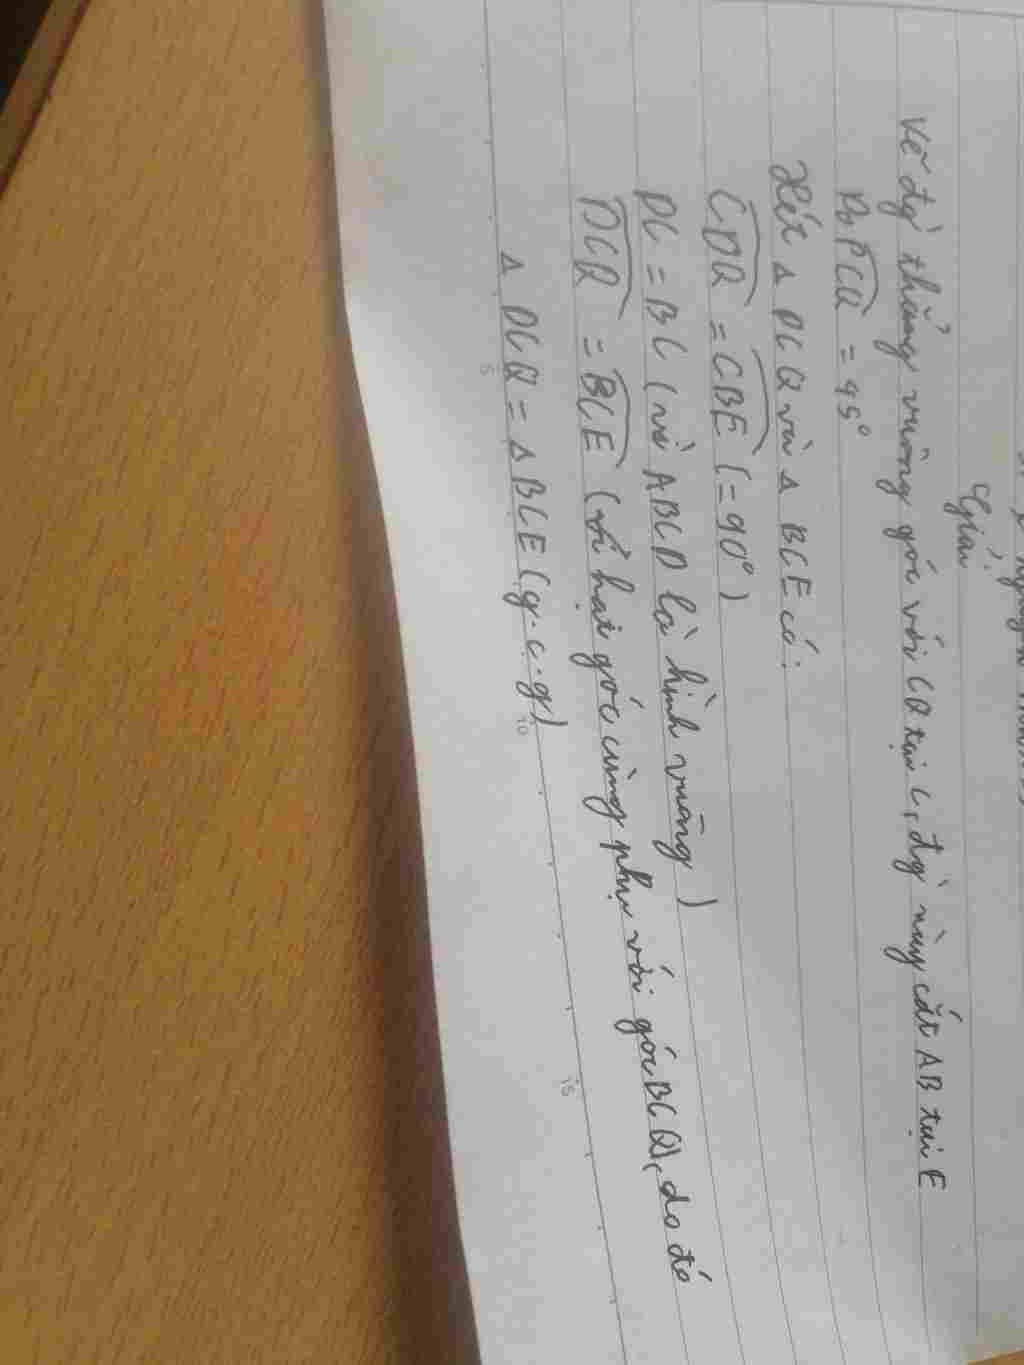 Giải:
Vẽ đg` thẳng vuông góc với CQ tại C, đg` này cắt AB tại E
PCQ = 45°
Xét Δ DCQ và Δ BCE có:
CDQ = CBE (= 90°)
DC = BC (vì ABCD là hình vuông)
DCQ = BCE (vì hai góc cùng phụ với góc BCQ), do đó
Δ DCQ = Δ BCE (g.c.g)
5 10 15